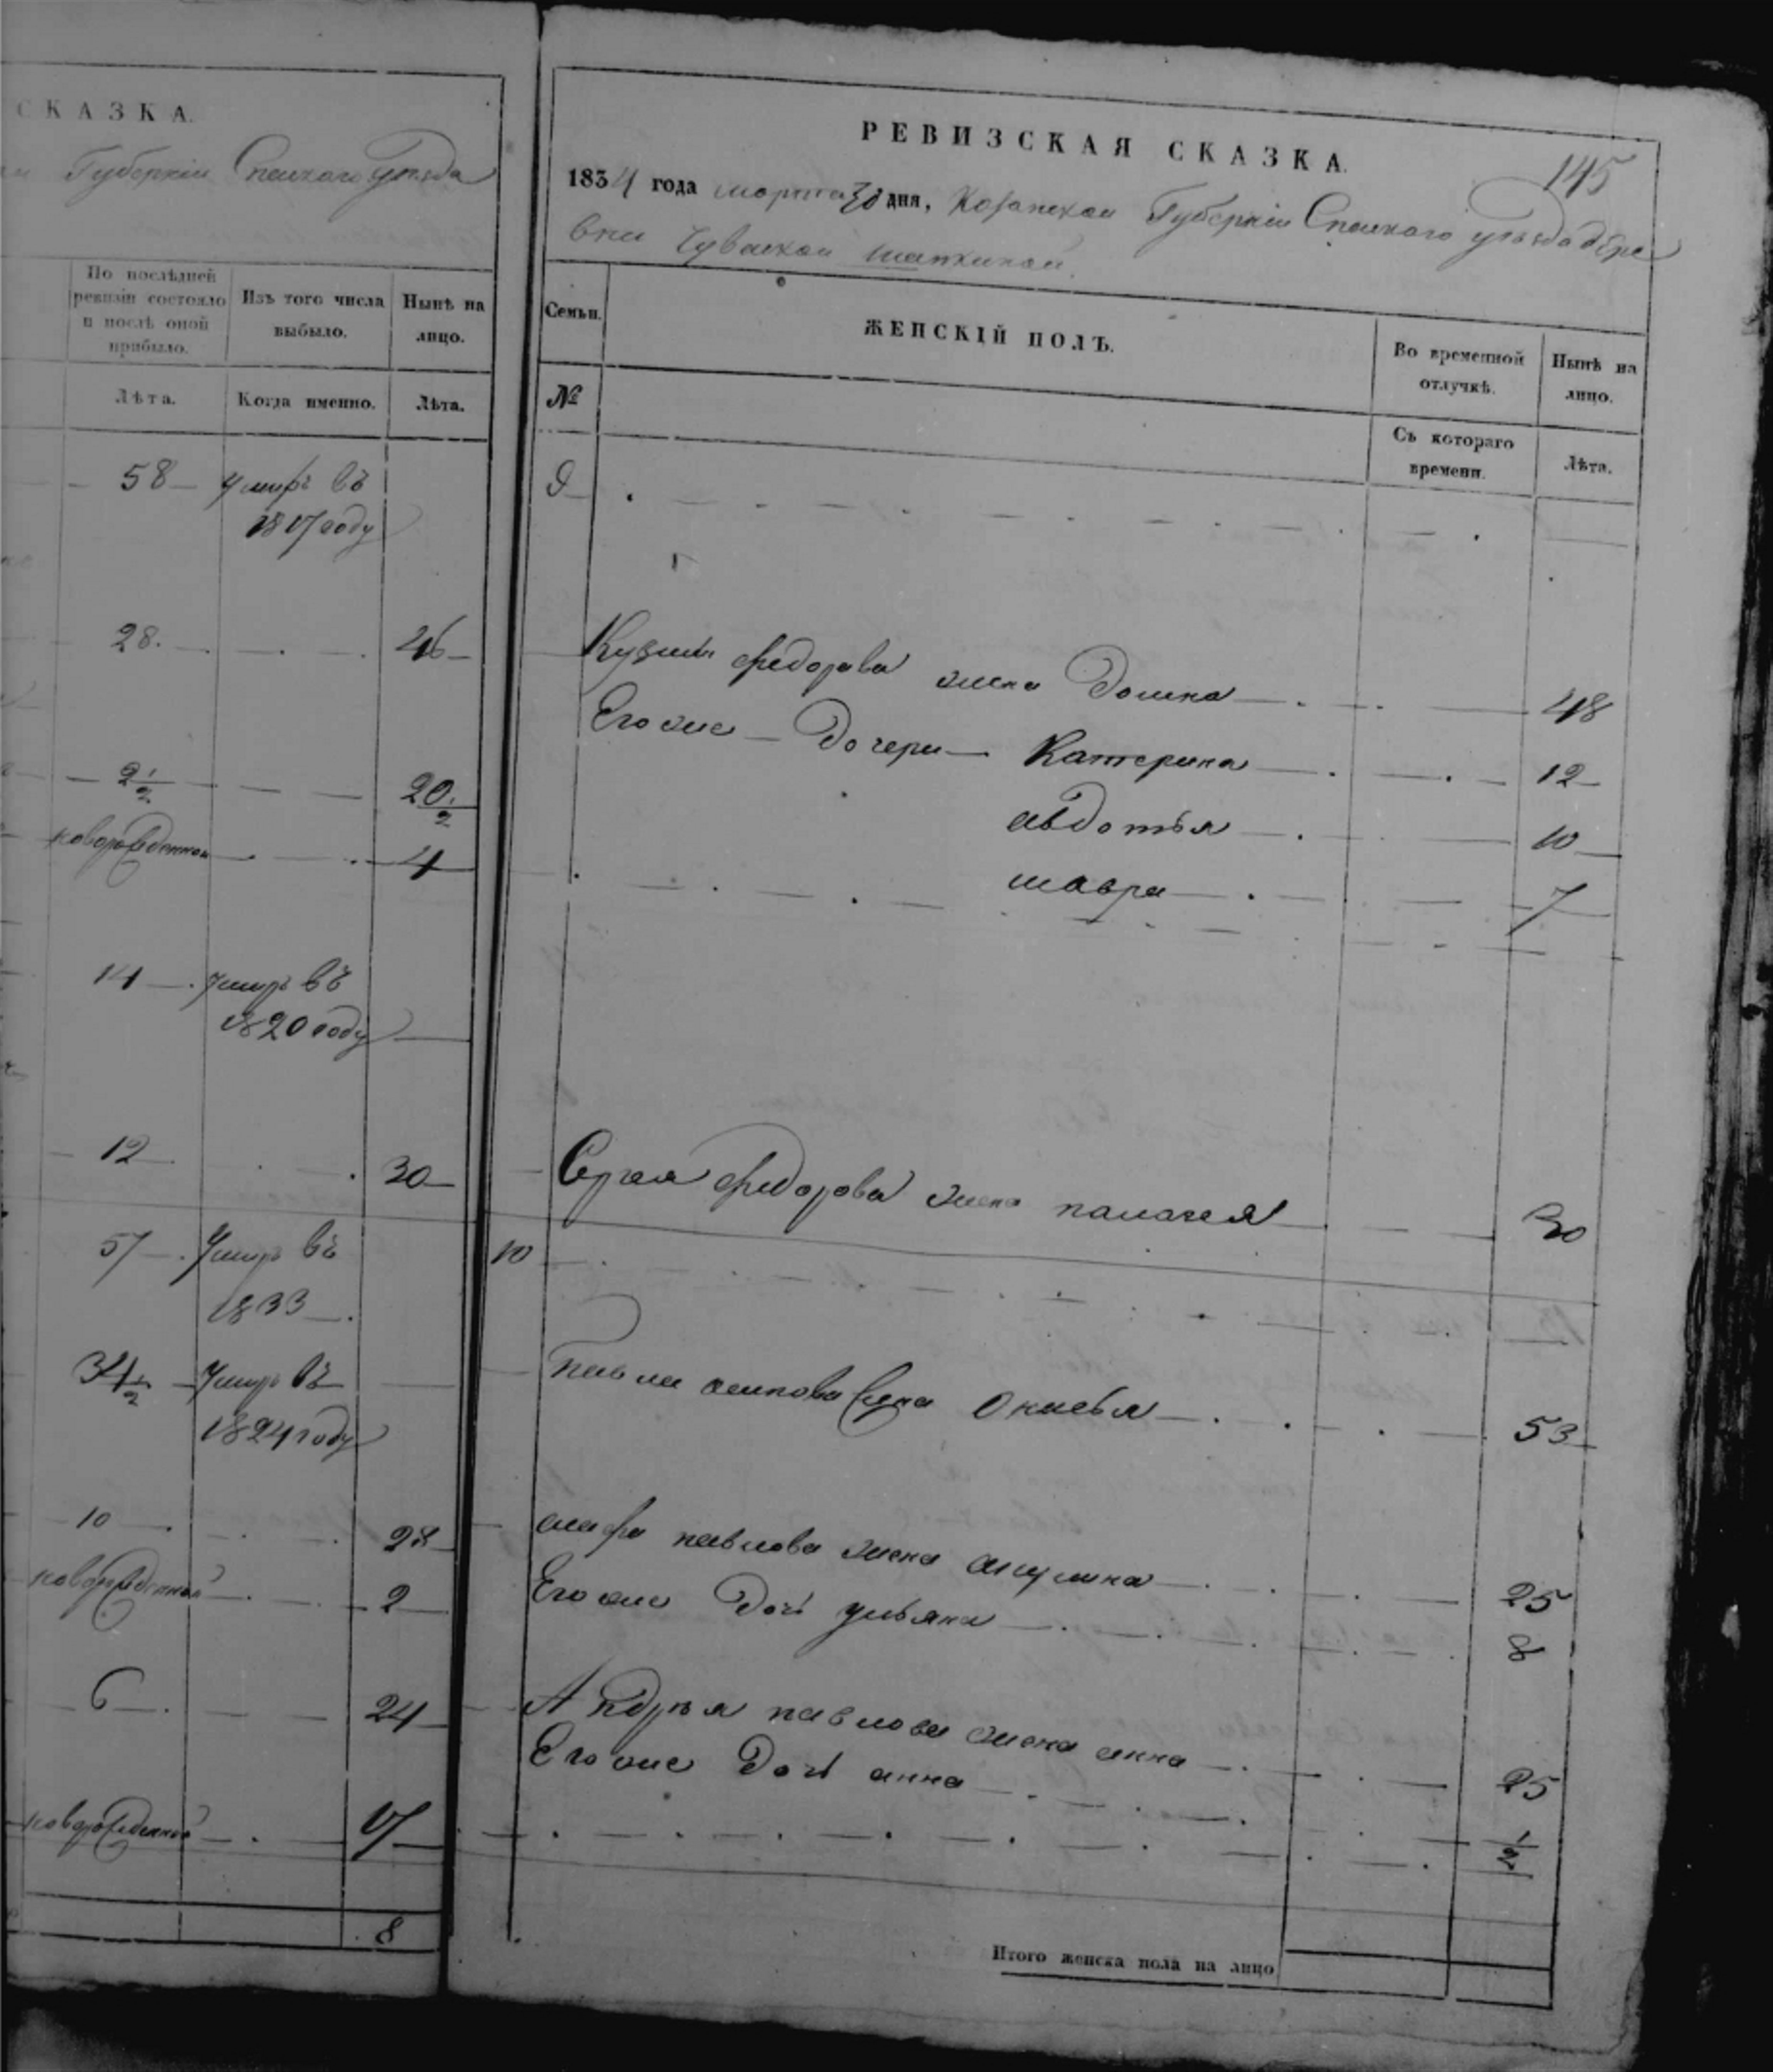 СКАЗКА.
Губернiи Спаскаго уѣзда
По послѣдней ревизiи состояло и послѣ оной прибыло.
Изъ того числа выбыло.
Нынѣ на лицо.
Лѣта.
Когда именно.
Лѣта.
58 умиръ въ
1817 году
28. 46
2 1/2 20 1/2
новорожденной 4
14 умиръ въ
1820 году
12 30
57 умиръ въ
1833
34 1/2 умиръ въ
1824 году
10 28
новорожденной 2
6 24
новорожденной 17
8
РЕВИЗСКАЯ СКАЗКА.
145
1834 года марта 30 дня, Казанской Губернiи Спаскаго уѣзда дере
вни Чуваской
Семьи.
ЖЕНСКIЙ ПОЛЪ.
Во временной отлучкѣ.
Нынѣ на лицо.
№
Съ котораго времени.
Лѣта.
9
Кузмы федорова жена Домна 48
Его же Дочери Катерина 12
авдотья 10
мавра 7
Сергея федорова жена палагея 30
10
Павла осипова жена 53
павлова жена акулина 25
Его же Дочь ульяна 8
Андрѣя павлова жена анна 25
Его же Дочь анна 1/2
Итого женска пола на лицо